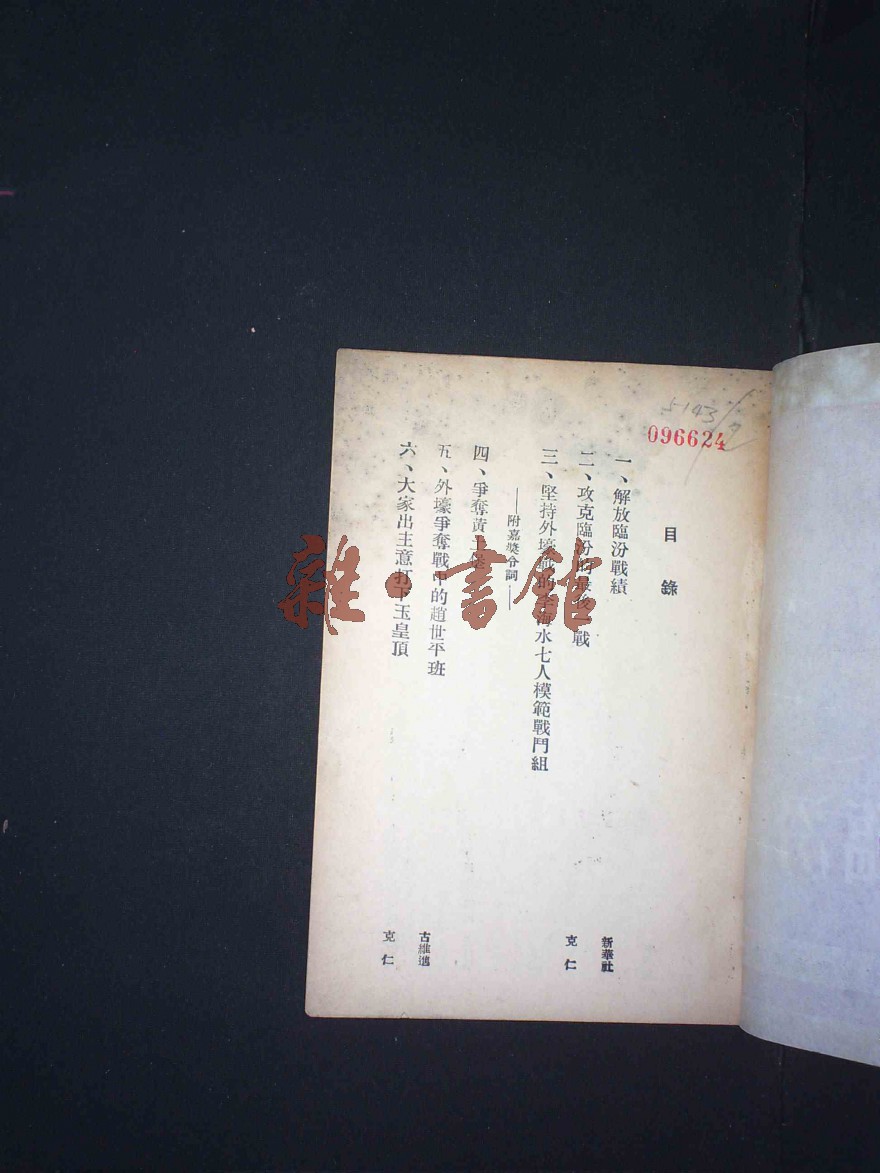 5143
096624
目錄
一、解放臨汾戰績
新華社
二、攻克臨汾的最後一戰
克仁
三、堅持外壕戰的 海水七人模範戰鬥組
——附嘉獎令詞——
四、爭奪黃土
五、外壕爭奪戰中的趙世平班
古維進
六、大家出主意打下玉皇頂
克仁
雜書館